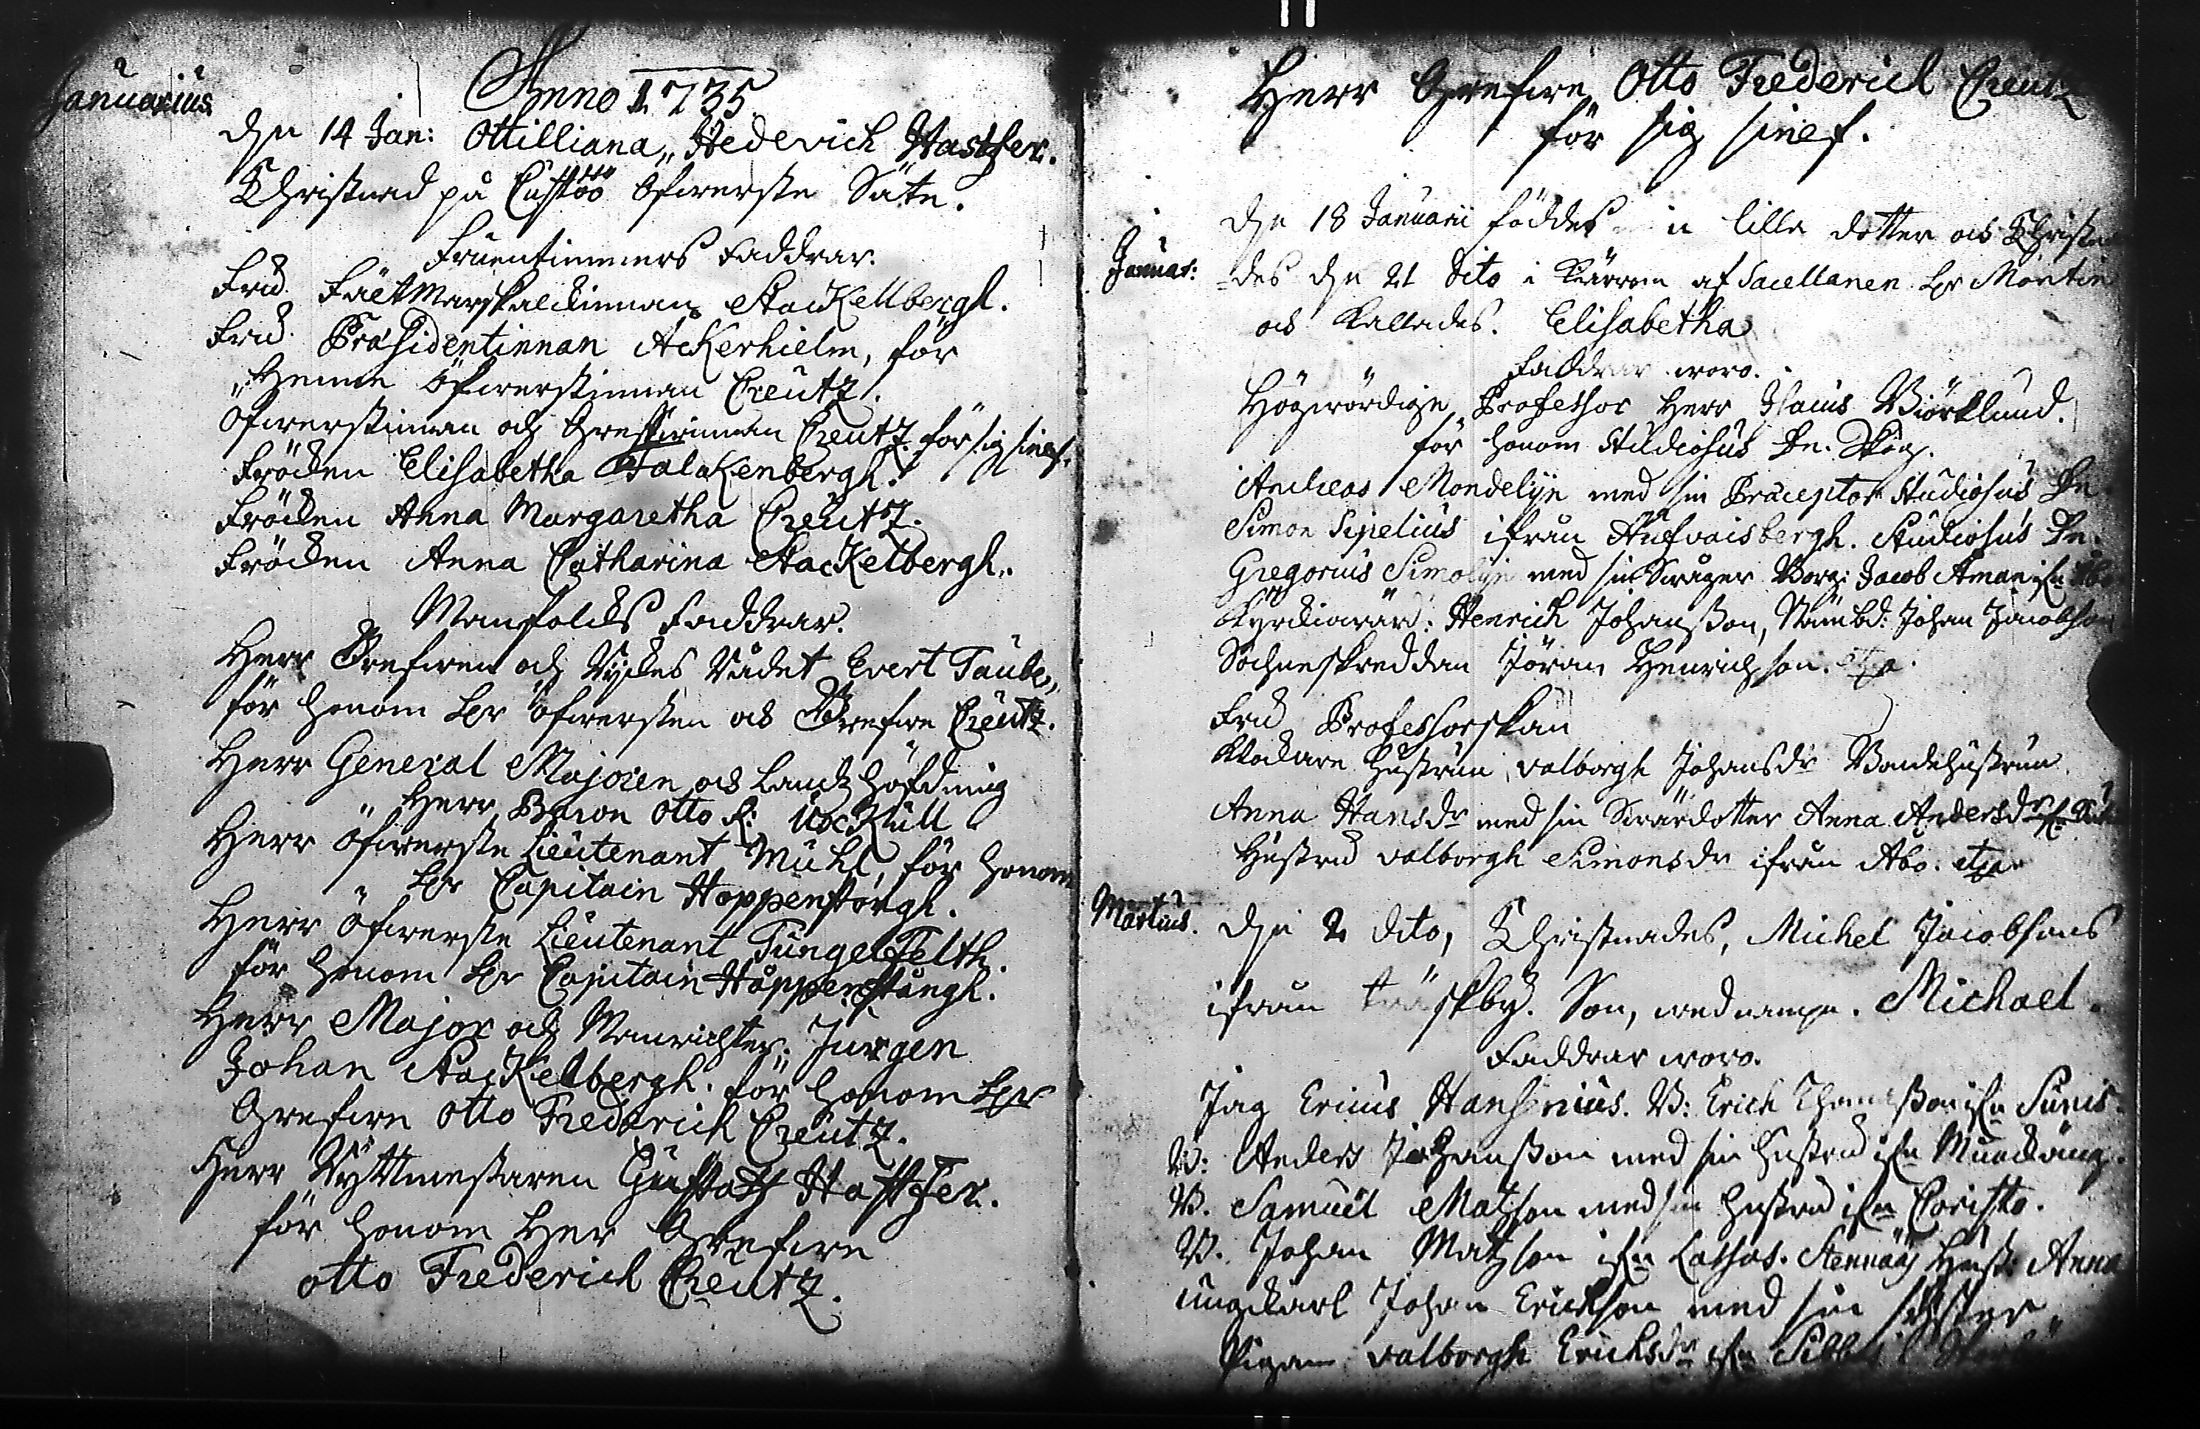 Januarius
Anno 1735
den 14 Jan: Ottilliana Hedevich Hastfer.
Christnad på Custöö öfwerste Säte.
Fruentimmers Faddrar.
Fru Fältmarskalckinnan Stackellbergh.
Fru Præsidentinnan Åkerhielm, för
Henne Öfwerstinnan Creutz.
Öfwerstinnan och Grefwinnan Creutz för sig sielf.
Fröcken Elisabetha Falckenbergh.
Fröcken Anna Margaretha Creutz.
Fröcken Anna Catharina Stackelbergh.
Manfolcks Faddrar.
Herr Grefwen och Rijckes Rådet Evert Taube,
för honom Hr Öfwersten och Grefwe Creutz.
Herr General Majoren och Landzhöfding
Herr Baron Otto R: Üxküll
Herr Öfwerste Lieutenant Mühl, för honom
Hr Capitain Hoppenstångh.
Herr Öfwerste Lieutenant Tungelfelth.
för honom Hr Capitain Hoppenstångh.
Herr Major och Manrichter, Jürgen
Johan Stackelbergh. för honom Hr
Grefwe Otto Frederich Creutz.
Herr Ryttmestaren Gustaff Hastfer.
för honom Her Grefwe
Otto Frederich Creutz.
Herr Grefwe Otto Frederich Creutz
för sig sielf.
Januar:
den 18 Januarii föddes en lille dotter och Christna
des den 21 dito i af Sacellanen Hr Montin
och kallades. Elisabetha
Faddrar woro.
Högwördige Professor Herr Isacus Biörklund.
för honom Studiosus
Andreas Mondelijn med sin Præceptor Studiosus
Simon Sipelius ifrån Studiosus
Gregorius Simolijn med sin Swåger Borg: Jacob Aman
Kyrckiowärd: Henrich Johansson, Nämbd: Johan Jacobson
Sochneskreddan Jöran Henrichson.
Fru Professorskan
Klockare hustrun, Valborgh Johansdr Bondehustrun
Anna Hansdr med sin Swärdotter Anna Andersdr
Hustru Valborgh Simonsdr ifrån Abo.
Martius.
den 2 dito, Christnades, Michel Jacobsons
ifrån Träskby. Son, wed namn. Michael.
Faddrar woro.
Jag Ericus Hansenius. B: Erich Thomasson ifn Sunis.
B: Anders Johansson med sin hustru ifn
B. Samuel Matson med sin hustru ifn Coristo.
B. Johan Matzson ifn Stennäs Hust: Anna
ungekarl Johan Erickson med sin syster
Pigan Valborgh Ericksdr ifn